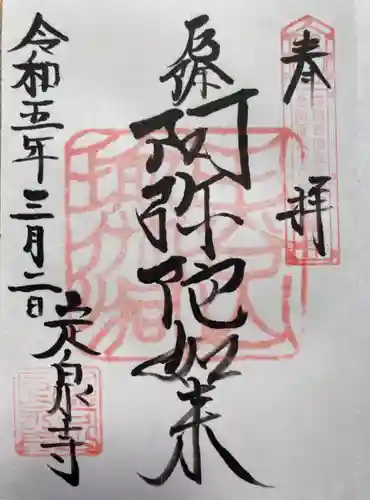 奉拝
阿弥陀如来
令和五年三月二日
定泉寺